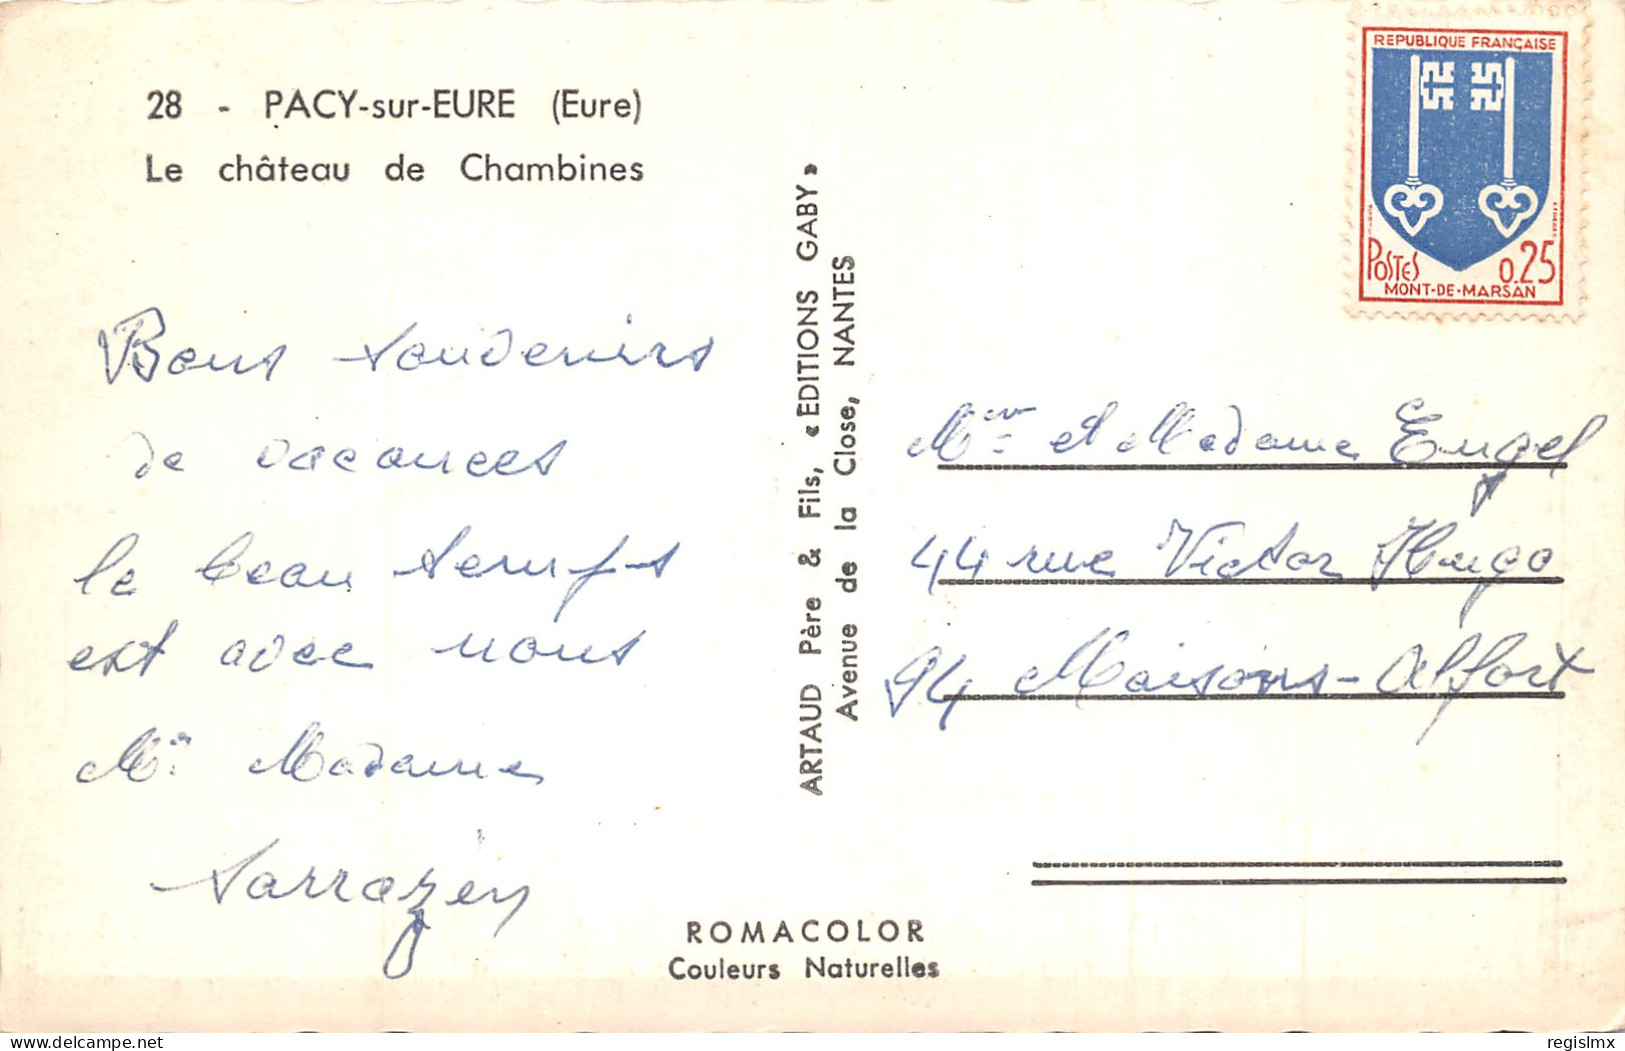 28 - PACY-sur-EURE (Eure)
Le château de Chambines
Bons souvenirs
de vacances
le beau temps
est avec nous
Mr Madame
Sarrazin
ARTAUD Père & Fils, « EDITIONS GABY »
Avenue de la Close, NANTES
ROMACOLOR
Couleurs Naturelles
REPUBLIQUE FRANÇAISE
POSTES 0.25
MONT-DE-MARSAN
Mr et Madame Engel
44 rue Victor Hugo
94 Maisons-Alfort
delcampe.net
regislmx